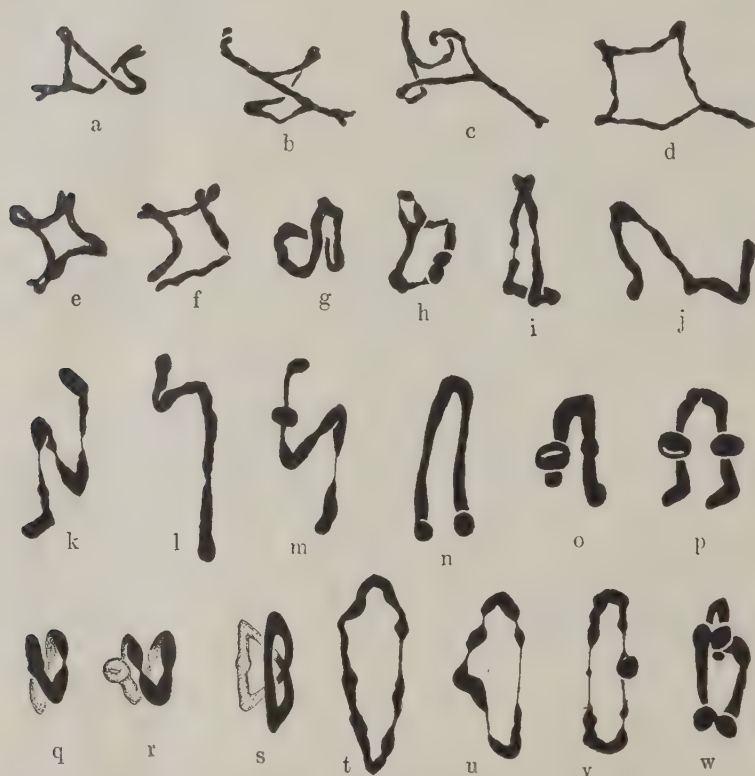 a b c d
e f g h i j
k l m n o p
q r s t u v w